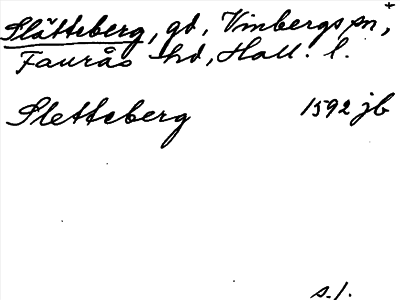 Slätteberg, gd, Vinbergs sn,
Faurås hd, Hall. l.
Sletteberg 1592 jb
s. 1.